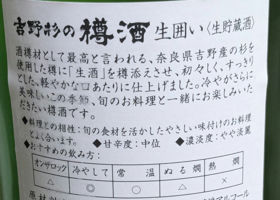 吉野杉の樽酒 生囲い〈生貯蔵酒〉
酒樽材として最高と言われる、奈良県吉野産の杉
を使用した樽に「生酒」を樽添えさせ、初々しく、すっきり
とした、軽やかな口あたりに仕上げました。冷やがさらに
美味しいこの季節、旬のお料理と一緒にお楽しみいた
だきたい樽酒です。
◆料理との相性:旬の食材を活かしたやさしい味付けのお料理
とよく合います。◆甘辛度:中位 ◆濃淡度:やや淡麗
◆おすすめの飲み方:
オンザロック 冷やして 常温 ぬる燗 熱燗
△ ◎ ○ △ ×
アルコール